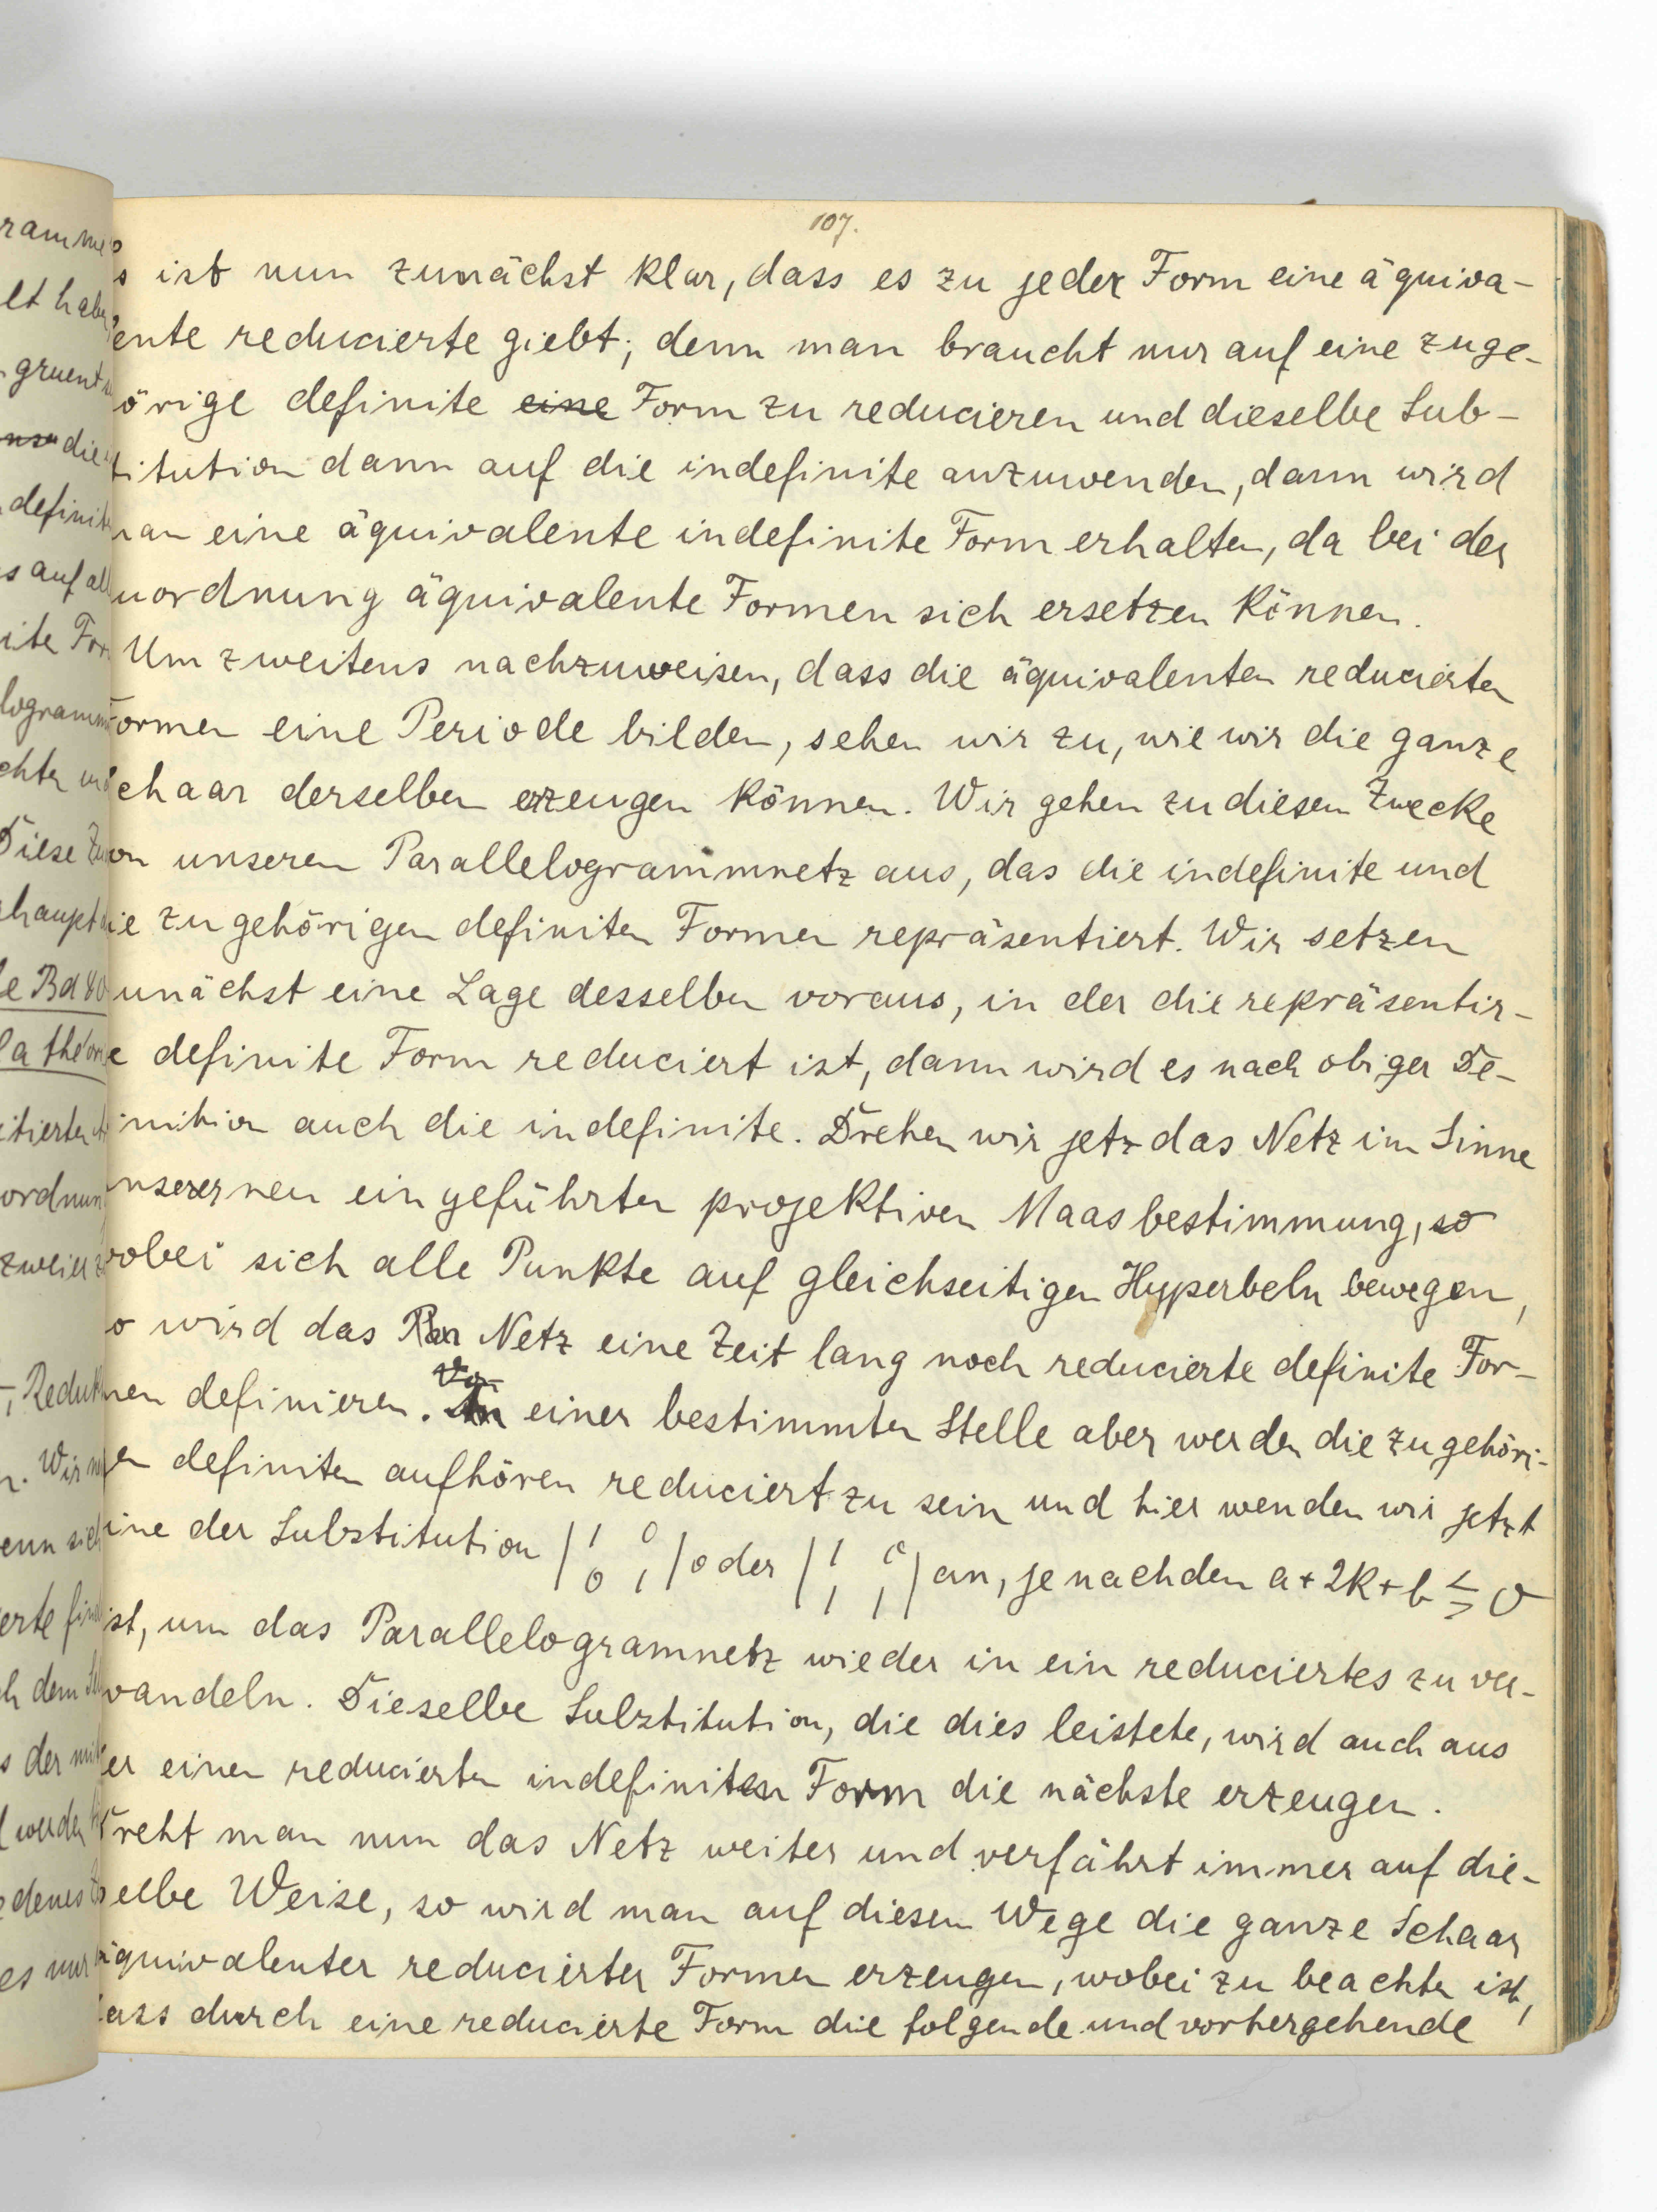 107.
s ist nun zunächst klar, dass es zu jeder Form eine äquiva-
ente reducierte giebt; denn man braucht nur auf eine zuge-
örige definite eine Form zu reducieren und dieselbe Sub-
titution dann auf die indefinite anzuwenden, dann wird
an eine äquivalente indefinite Form erhalten, da bei der
uordnung äquivalente Formen sich ersetzen können.
Um zweitens nachzuweisen, dass die äquivalenten reducierten
ormen eine Periode bilden, sehen wir zu, wie wir die ganze
chaar derselben erzeugen können. Wir gehen zu diesem Zwecke
on unserem Parallelogrammnetz aus, das die indefinite und
ie zugehörigen definiten Formen repräsentiert. Wir setzen
unächst eine Lage desselben voraus, in der die repräsentir-
e definite Form reduciert ist, dann wird es nach obiger De-
inition auch die indefinite. Drehen wir jetz das Netz im Sinne
unserer neu eingeführten projektiven Maasbestimmung, so
wobei sich alle Punkte auf gleichseitigen Hyperbeln bewegen,
o wird das Par Netz eine Zeit lang noch reducierte definite For-
men definieren. Von einer bestimmten Stelle aber werden die zugehöri-
gen definiten aufhören reduciert zu sein und hier wenden wir jetzt
ine der Substitution | 1 0 | oder | 1 0 | an, je nachdem a + 2k + b ≤ 0
0 1 1 1 >
ist, um das Parallelogramnetz wieder in ein reduciertes zu ver-
wandeln. Dieselbe Substitution, die dies leistete, wird auch aus
er einen reducierten indefiniten Form die nächste erzeugen.
Dreht man nun das Netz weiter und verfährt immer auf die-
elbe Weise, so wird man auf diesem Wege die ganze Schaar
äquivalenter reducierter Formen erzeugen, wobei zu beachten ist,
dass durch eine reducierte Form die folgende und vorhergehende